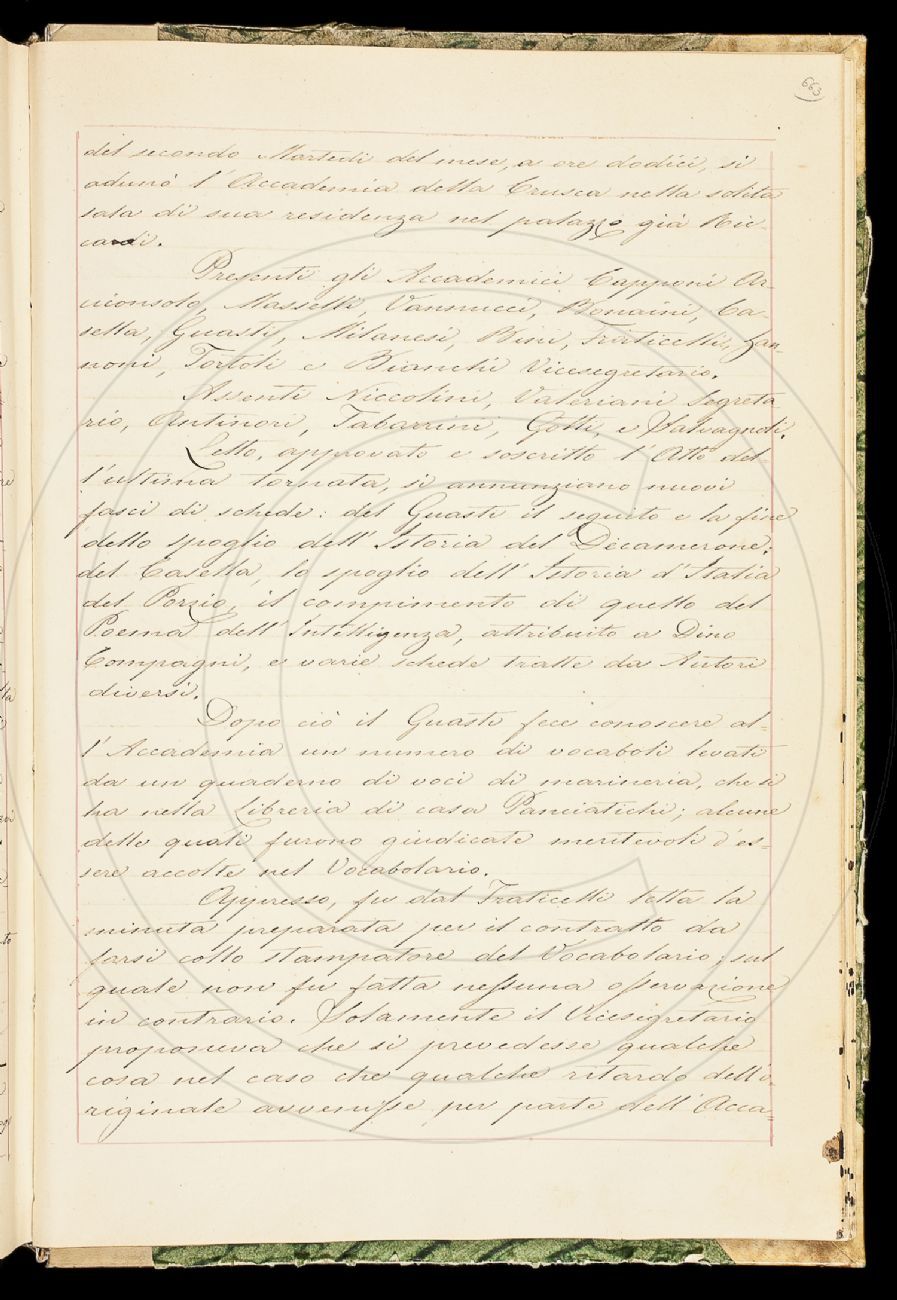 663
del secondo Martedì del mese, a ore dodici, si
adunò l'Accademia della Crusca nella solita
sala di sua residenza nel palazzo già Ric-
cardi.
Presenti gli Accademici Capponi Ar-
ciconsolo, Masselli, Vannucci, Bonaini, Ca-
sella, Guasti, Milanesi, Bini, Fraticelli, Zan-
noni, Tortoli e Bianchi Vicesegretario.
Assenti Niccolini, Valeriani Segreta
rio, Antinori, Tabarrini, Gotti, e Salvagnoli.
Letto, approvato e soscritto l'Atto del-
l'ultima tornata, si annunziano nuovi
fasci di schede: del Guasti il seguito e la fine
dello spoglio dell'Istoria del Decamerone;
del Casella, lo spoglio dell'Istoria d'Italia
del Porzio, il compimento di quello del
Poema dell'Intelligenza, attribuito a Dino
Compagni, e varie schede tratte da Autori
diversi.
Dopo ciò il Guasti fece conoscere al-
l'Accademia un numero di vocaboli levati
da un quaderno di voci di marineria, che si
ha nella Libreria di casa Panciatichi; alcune
delle quali furono giudicate meritevoli d'es-
sere accolte nel Vocabolario.
Appresso, fu dal Fraticelli letta la
minuta preparata per il contratto da
farsi collo stampatore del Vocabolario; sul
quale non fu fatta nessuna osservazione
in contrario. Solamente il Vicesegretario
proponeva che si prevedesse qualche
cosa nel caso che qualche ritardo dell'o-
riginale avvenisse per parte dell'Acca-